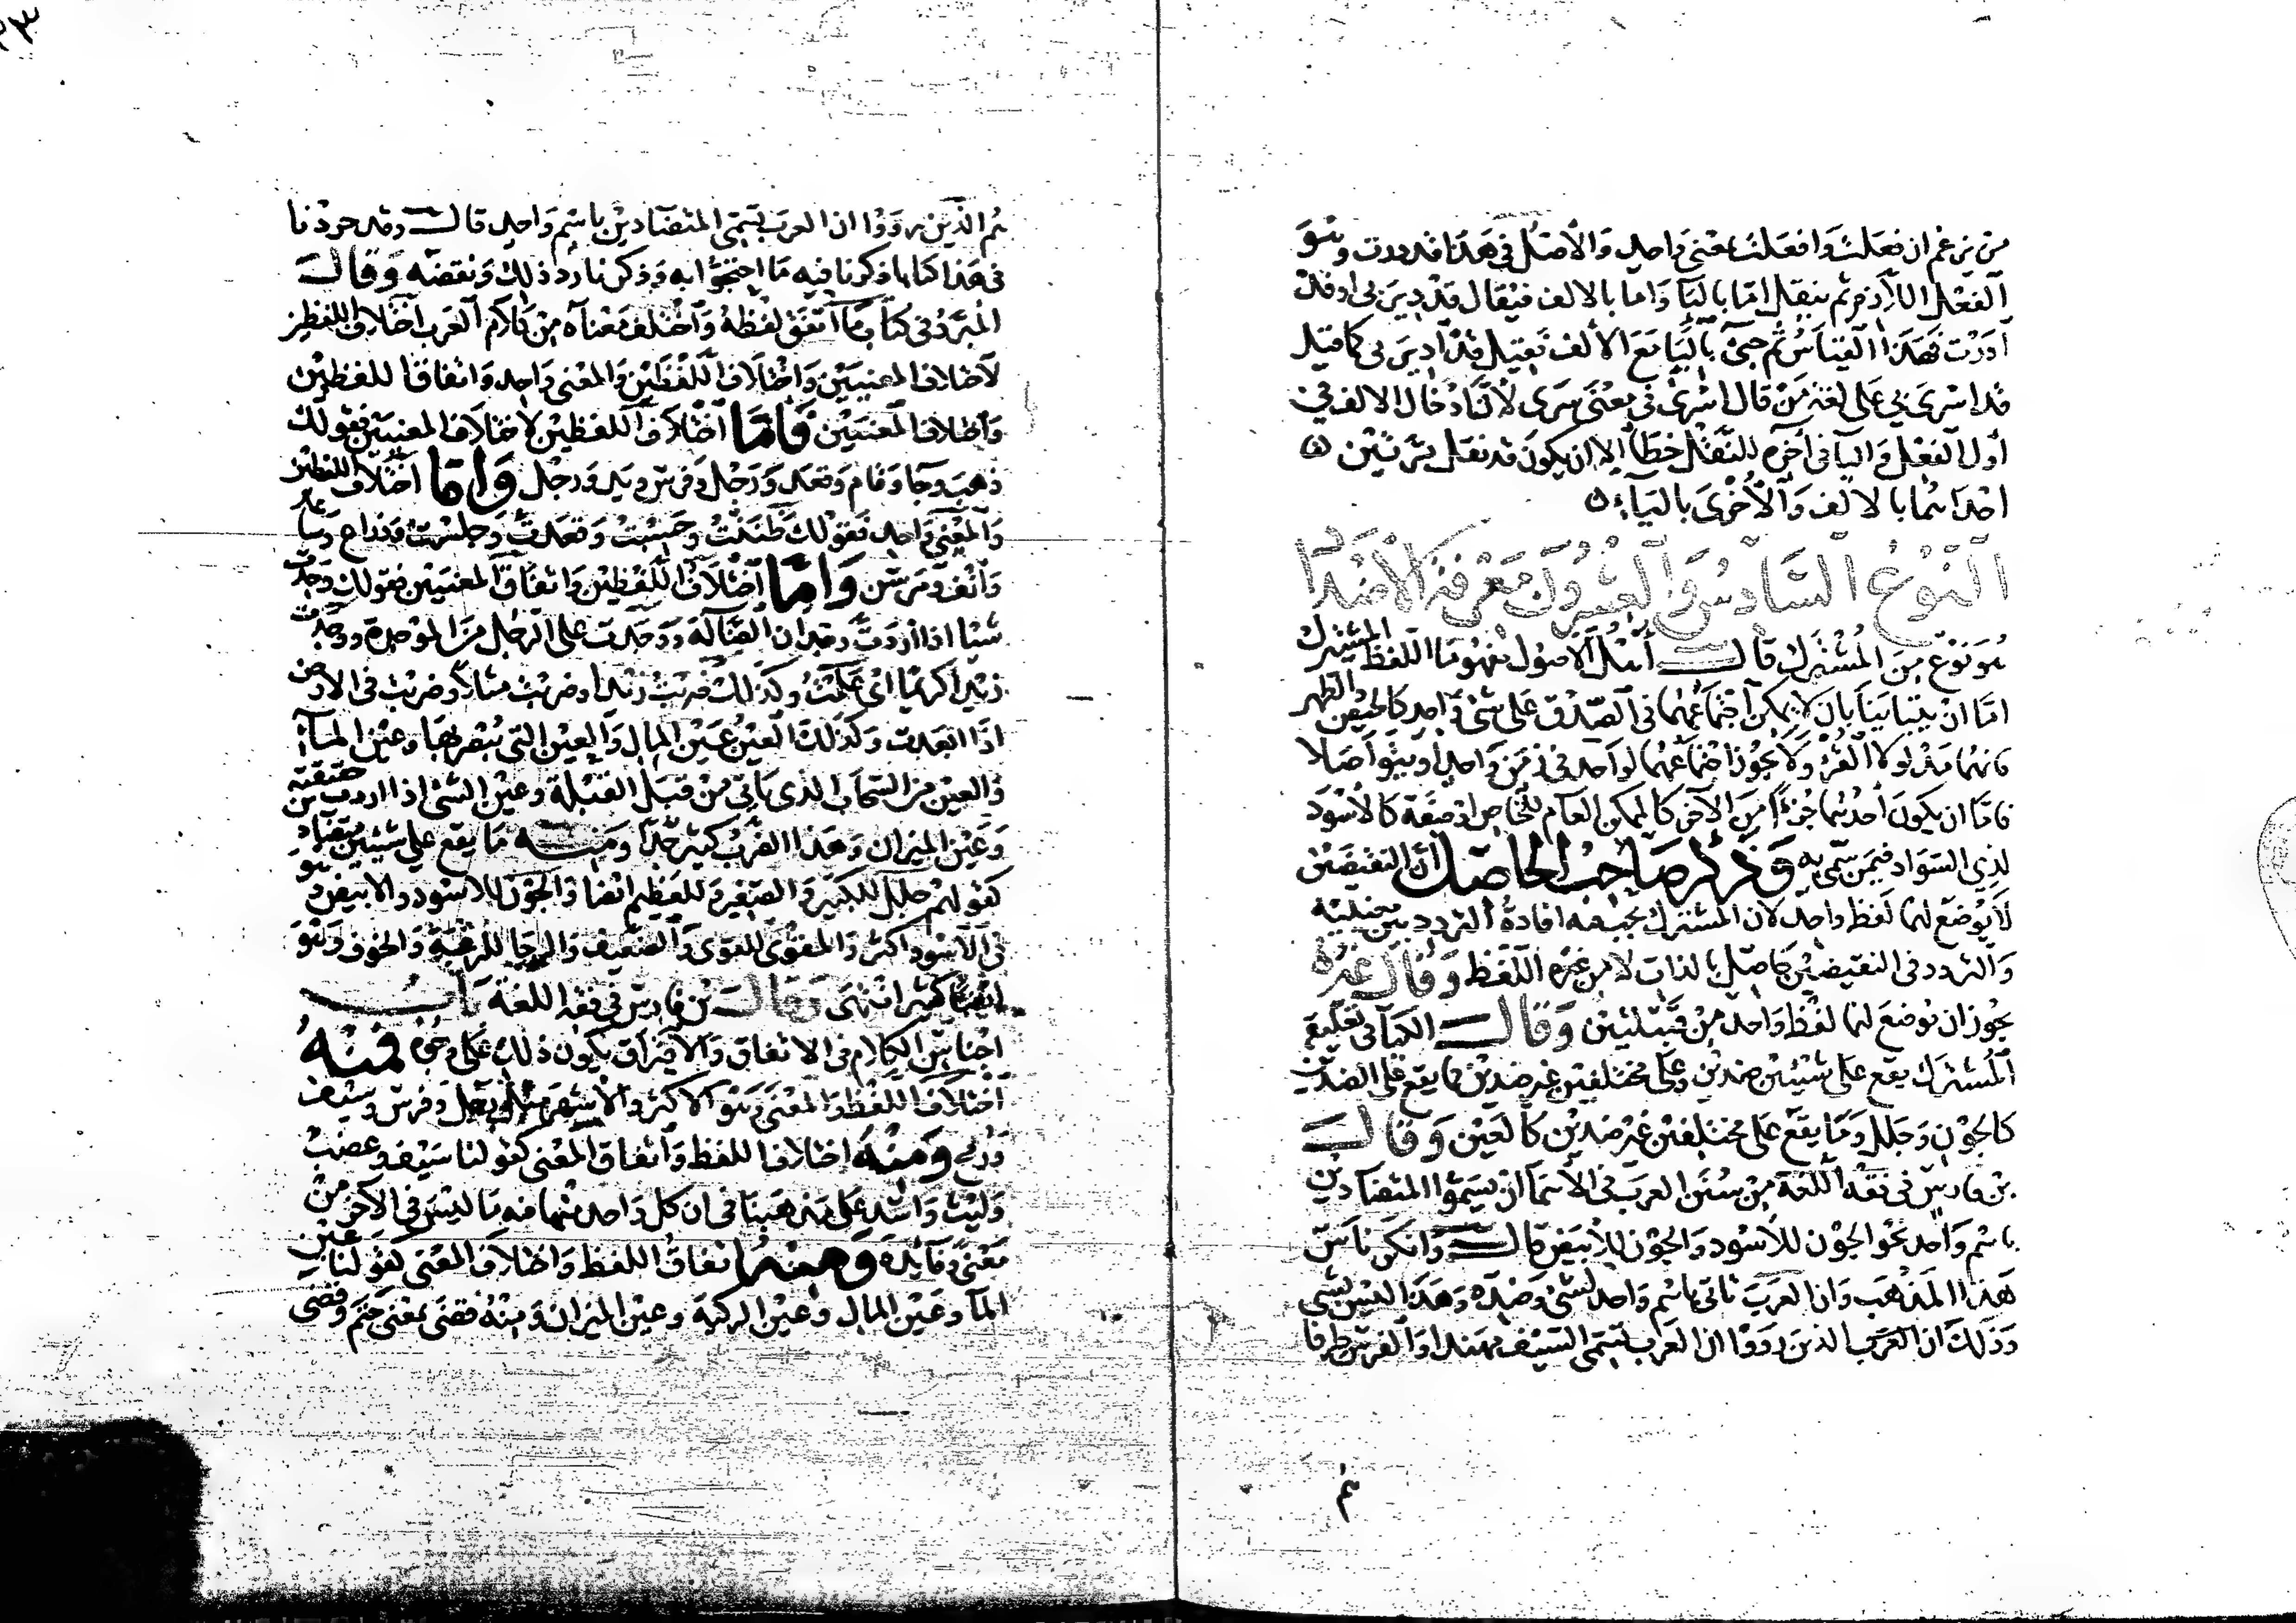 من يزعم ان فعلت وافعلت بمعنى واحد والأصل في هذا قد درت وهو
الفعل اللازم ثم ينقل اما باليا واما بالالف فيقال قد دير بي او قد
أدرت فهذا القياس ثم جئ باليا مع الالف فقيل قد أدير بي كما قيل
قد اسرى بي على لغة من قال اسرى في معنى سرى لأن ادخال الالف في
أول الفعل واليا في آخره للنقل خطأ إلا ان يكون قد نقل مرتين
احداهما بالالف والأخرى بالياء
النوع السادس والعشرون معرفة الأضداد
هو نوع من المشترك قال أهل الأصول مفهوما اللفظ المشترك
اما ان يتباينا بأن لا يمكن اجتماعهما في الصدق على شئ واحد كالحيض والطهر
فانهما مدلولا القرء ولا يجوز اجتماعهما لواحد في زمن واحد او يتواصلا
فاما ان يكون أحدهما جزءا من الآخر كالممكن العام للخاص او صفة كالأسود
لذي السواد فيمن سمى به وذكر صاحب الحاصل أن النقيضين
لا يوضع لهما لفظ واحد لان المشترك يجب فيه افادة التردد بين معنييه
والتردد في النقيضين حاصل بالذات لا من غير اللفظ وقال غيره
يجوز ان يوضع لهما لفظ واحد من قبيلتين وقال الكيا في تعليقه
المشترك يقع على شيئين ضدين وعلى مختلفين غير ضدين فما يقع على الضدين
كالجون وجلل وما يقع على مختلفين غير ضدين كالعين وقال
بن فارس في فقه اللغة من سنن العرب في الأسما ان يسموا المتضادين
باسم واحد نحو الجون للأسود والجون للأبيض قال وانكر ناس
هذا المذهب وان العرب تاتي باسم واحد لشئ وضده وهذا ليس بشئ
وذلك ان العرب الذين رووا ان العرب تسمى السيف مهندا والفرس طرفا
هم
هم الذين رووا ان العرب تسمى المتضادين باسم واحد قال وقد جردنا
في هذا كتابا ذكرنا فيه ما احتجوا به وذكرنا رد ذلك ونقضه وقال
المبرد في كتاب ما اتفق لفظه واختلف معناه من كلام العرب اختلاف اللفظين
لاختلاف المعنيين واختلاف اللفظين والمعنى واحد واتفاق اللفظين
واختلاف المعنيين فاما اختلاف اللفظين لاختلاف المعنيين فقولك
ذهب وجا وقام وقعد ورجل وفرس ويد ورجل واما اختلاف اللفظين
والمعنى واحد فقولك ظننت وحسبت وقعدت وجلست وذراع وساعد
وأنف ومرسن واما اختلاف اللفظين واتفاق المعنيين فقولك وجدت
شيئا اذا أردت وجدان الضالة ووجدت على الرجل من الموجدة ووجدت
زيدا كريما اى علمت وكذلك ضربت زيدا وضربت مثلا وضربت في الارض
اذا ابعدت وكذلك العين عين المال والعين التي يبصر بها وعين الماء
والعين من السحاب الذي ياتي من قبل القبلة وعين الشئ اذا اردت حقيقته
وعين الميزان وهذا الضرب كثير جدا ومنه ما يقع على شيئين متضادين
كقولهم جلل للكبير والصغير وللعظيم ايضا والجون للاسود والابيض وهو
في الأسود اكثر والمقوى للقوى والضعيف والرجا للرغبة والخوف وهو
ايضا كثير انتهى وقال بن فارس في فقه اللغة باب
اجناس الكلام في الاتفاق والافتراق يكون ذلك على وجوه فمنه
اختلاف اللفظ والمعنى وهو الاكثر والأشهر مثل رجل وفرس وسيف
ورمح ومنه اختلاف اللفظ واتفاق المعنى كقولنا سيف وعضب
وليث واسد على مذهبنا في ان كل واحد منهما فيه ما ليس في الآخر من
معنى وفائدة ومنه اتفاق اللفظ واختلاف المعنى كقولنا عين
الما وعين المال وعين الركبة وعين الميزان ومنه قضى بمعنى حتم وقضى